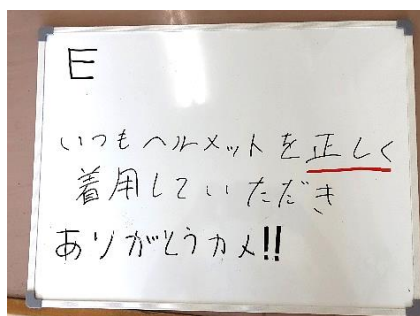 E
いつもヘルメットを正しく
着用していただき
ありがとうカメ!!